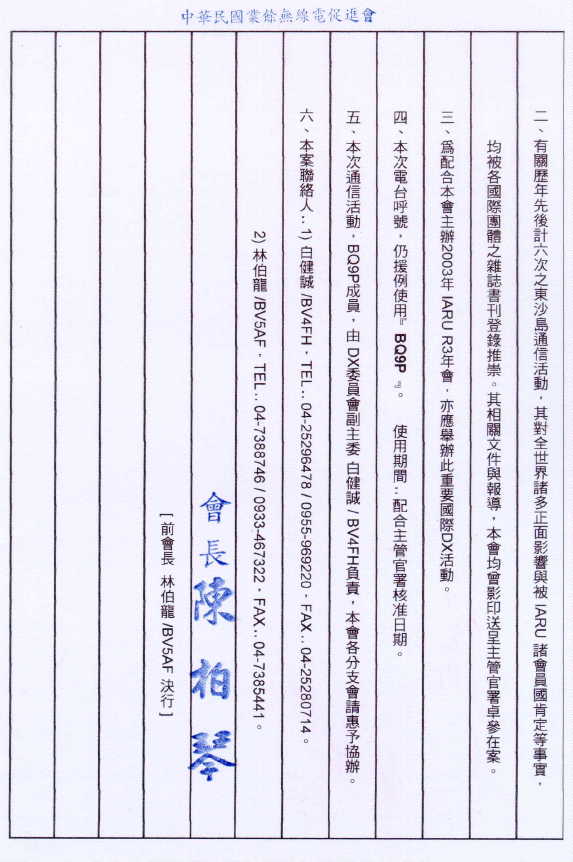 中華民國業餘無線電促進會
二、有關歷年先後計六次之東沙島通信活動，其對全世界諸多正面影響與被 IARU 諸會員國肯定等事實，
均被各國際團體之雜誌書刊登錄推崇。其相關文件與報導，本會均曾影印送呈主管官署卓參在案。
三、爲配合本會主辦2003年 IARU R3年會，亦應舉辦此重要國際DX活動。
四、本次電台呼號，仍援例使用『 BQ9P 』。 使用期間：配合主管官署核准日期。
五、本次通信活動，BQ9P成員，由 DX委員會副主委 白健誠 / BV4FH負責，本會各分支會請惠予協辦。
六、本案聯絡人：1) 白健誠 /BV4FH，TEL：04-25296478 / 0955-969220，FAX：04-25280714。
2) 林伯龍 /BV5AF，TEL：04-7388746 / 0933-467322，FAX：04-7385441。
會長 陳柏琴
[ 前會長 林伯龍 /BV5AF 決行 ]